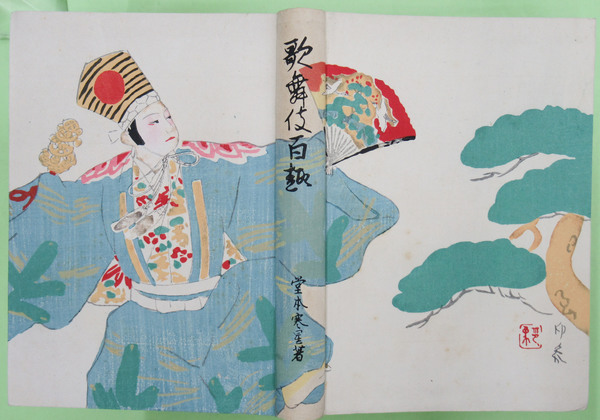 歌舞伎百趣
堂本寒星著